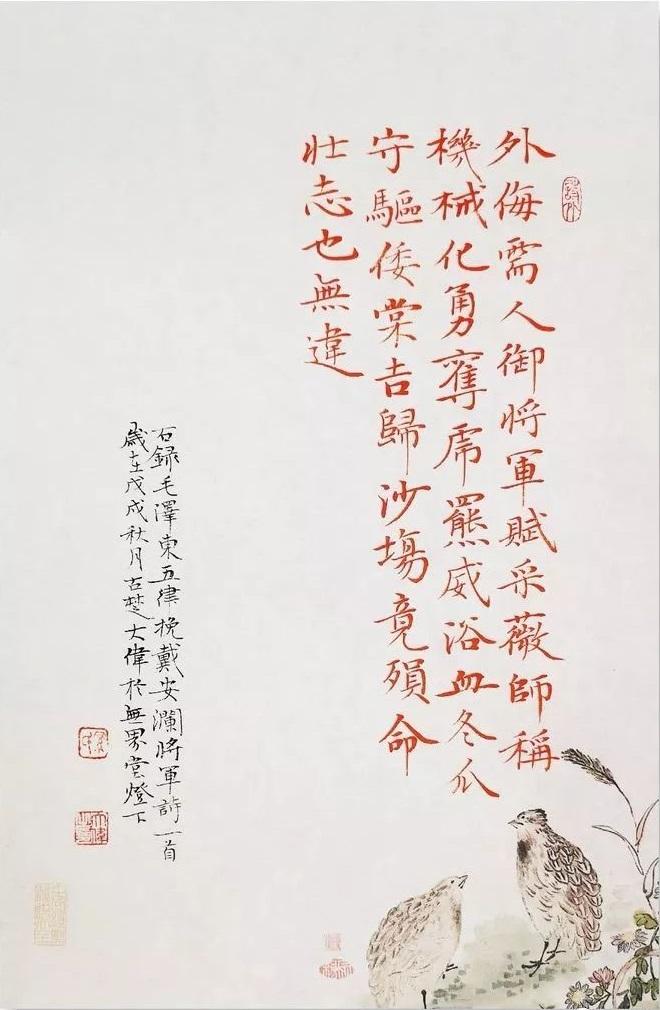 外侮需人御將軍賦采薇師稱
機械化勇奪虎羆威浴血冬瓜
守驅倭棠吉歸沙塲竟殞命
壯志也無違
右錄毛澤東五律挽戴安瀾將軍詩一首
歲在戊戌秋月古楚大偉於無界堂燈下